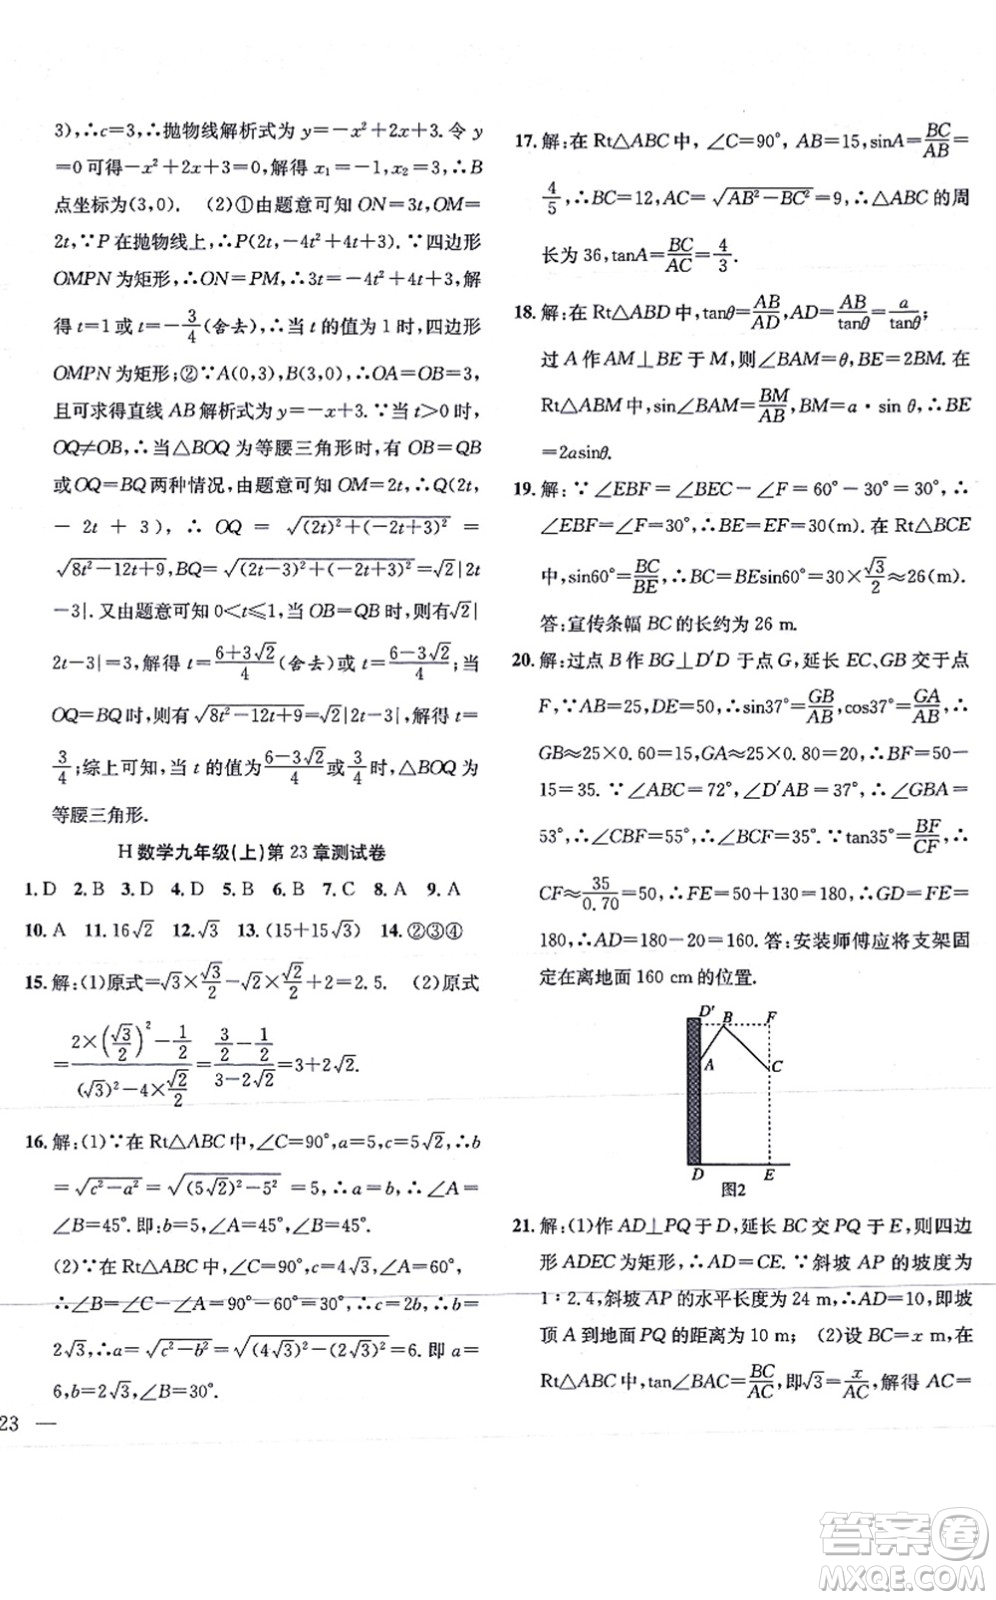 3),∴c=3,∴抛物线解析式为 y=-x²+2x+3. 令 y
=0 可得-x²+2x+3=0,解得 x₁=-1,x₂=3,∴B
点坐标为(3,0). (2)①由题意可知 ON=3t,OM=
2t,∵P 在抛物线上,∴P(2t,-4t²+4t+3).∵四边形
OMPN 为矩形,∴ON=PM,∴3t=-4t²+4t+3,解
得 t=1 或 t=-3/4(舍去),∴当 t 的值为 1 时,四边形
OMPN 为矩形;②∵A(0,3),B(3,0),∴OA=OB=3,
且可求得直线 AB 解析式为 y=-x+3.∵当 t>0 时,
OQ≠OB,∴当△BOQ 为等腰三角形时,有 OB=QB
或 OQ=BQ 两种情况,由题意可知 OM=2t,∴Q(2t,
-2t+3),∴OQ=√((2t)²+(-2t+3)²)=
√(8t²-12t+9),QB=√((2t-3)²+(-2t+3)²)=√2|2t
-3|.又由题意可知 0<t≤1,当 OB=QB 时,则有√2|
2t-3|=3,解得 t=(6+3√2)/4(舍去)或 t=(6-3√2)/4;当
OQ=BQ 时,则有√(8t²-12t+9)=√2|2t-3|,解得 t=
3/4;综上可知,当 t 的值为(6-3√2)/4或3/4时,△BOQ 为
等腰三角形.
H 数学九年级(上)第 23 章测试卷
1. D 2. B 3. D 4. D 5. B 6. B 7. C 8. A 9. A
10. A 11. 16√2 12. √3 13. (15+15√3) 14. ②③④
15. 解:(1)原式=√3×√3/2-√2×√2/2+2=2.5. (2)原式
=(2×(√3/2)²-1/2)/((√3)²-4×√2/2)=(3/2-1/2)/(3-2√2)=3+2√2.
16. 解:(1)∵在 Rt△ABC 中,∠C=90°,a=5,c=5√2,∴b
=√(c²-a²)=√((5√2)²-5²)=5,∴a=b,∴∠A=
∠B=45°.即:b=5,∠A=∠B=45°.
(2)∵在 Rt△ABC 中,∠C=90°,c=4√3,∠A=60°,
∴∠B=∠C-∠A=90°-60°=30°,∴b=1/2c,∴b=
2√3,∴a=√(c²-b²)=√((4√3)²-(2√3)²)=6.即 a=
6,b=2√3,∠B=30°.
23 —
17. 解:在 Rt△ABC 中,∠C=90°,AB=15,sinA=BC/AB=
4/5,∴BC=12,AC=√(AB²-BC²)=9,∴△ABC 的周
长为 36,tanA=BC/AC=4/3.
18. 解:在 Rt△ABD 中,tanθ=AB/AD,AD=AB/tanθ=a/tanθ;
过 A 作 AM⊥BE 于 M,则∠BAM=θ,BE=2BM.在
Rt△ABM 中,sin∠BAM=BM/AB,BM=a·sin θ,∴BE
=2asinθ.
19. 解:∵∠EBF=∠BEC-∠F=60°-30°=30°,∴
∠EBF=∠F=30°,∴BE=EF=30(m).在 Rt△BCE
中,sin60°=BC/BE,∴BC=BEsin60°=30×√3/2≈26(m).
答:宣传条幅 BC 的长约为 26 m.
20. 解:过点 B 作 BG⊥D′D 于点 G,延长 EC、GB 交于点
F,∵AB=25,DE=50,∴sin37°=GB/AB,cos37°=GA/AB,∴
GB≈25×0.60=15,GA≈25×0.80=20,∴BF=50-
15=35.∵∠ABC=72°,∠D′AB=37°,∴∠GBA=
53°,∴∠CBF=55°,∴∠BCF=35°.∵tan35°=BF/CF,∴
CF≈35/0.70=50,∴FE=50+130=180,∴GD=FE=
180,∴AD=180-20=160.答:安装师傅应将支架固
定在离地面 160 cm 的位置.
D′ B F
A C
D E
图2
21. 解:(1)作 AD⊥PQ 于 D,延长 BC 交 PQ 于 E,则四边
形 ADEC 为矩形,∴AD=CE.∵斜坡 AP 的坡度为
1∶2.4,斜坡 AP 的水平长度为 24 m,∴AD=10,即坡
顶 A 到地面 PQ 的距离为 10 m; (2)设 BC=x m,在
Rt△ABC 中,tan∠BAC=BC/AC,即√3=x/AC,解得 AC=
答案卷
MXQE.COM